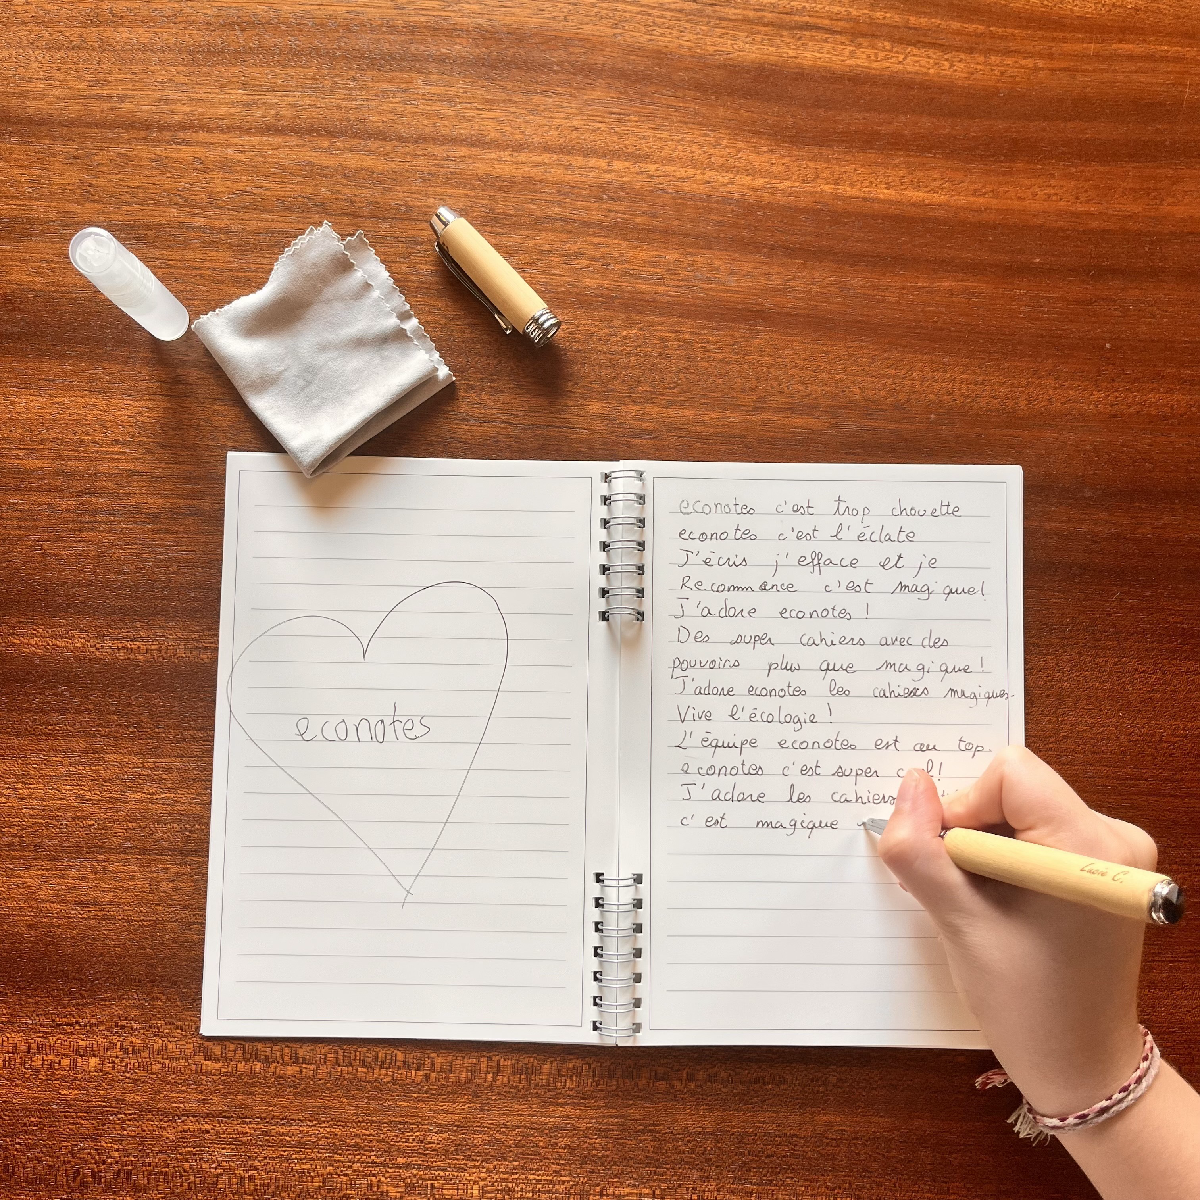 econotes
econotes c'est trop chouette
econotes c'est l'éclate
J'écris j'efface et je
Recommence c'est magique!
J'adore econotes !
Des super cahiers avec des
pouvoirs plus que magique!
J'adore econotes les cahiers magiques.
Vive l'écologie !
L'équipe econotes est au top.
econotes c'est super !
J'adore les cahiers
c'est magique
C.